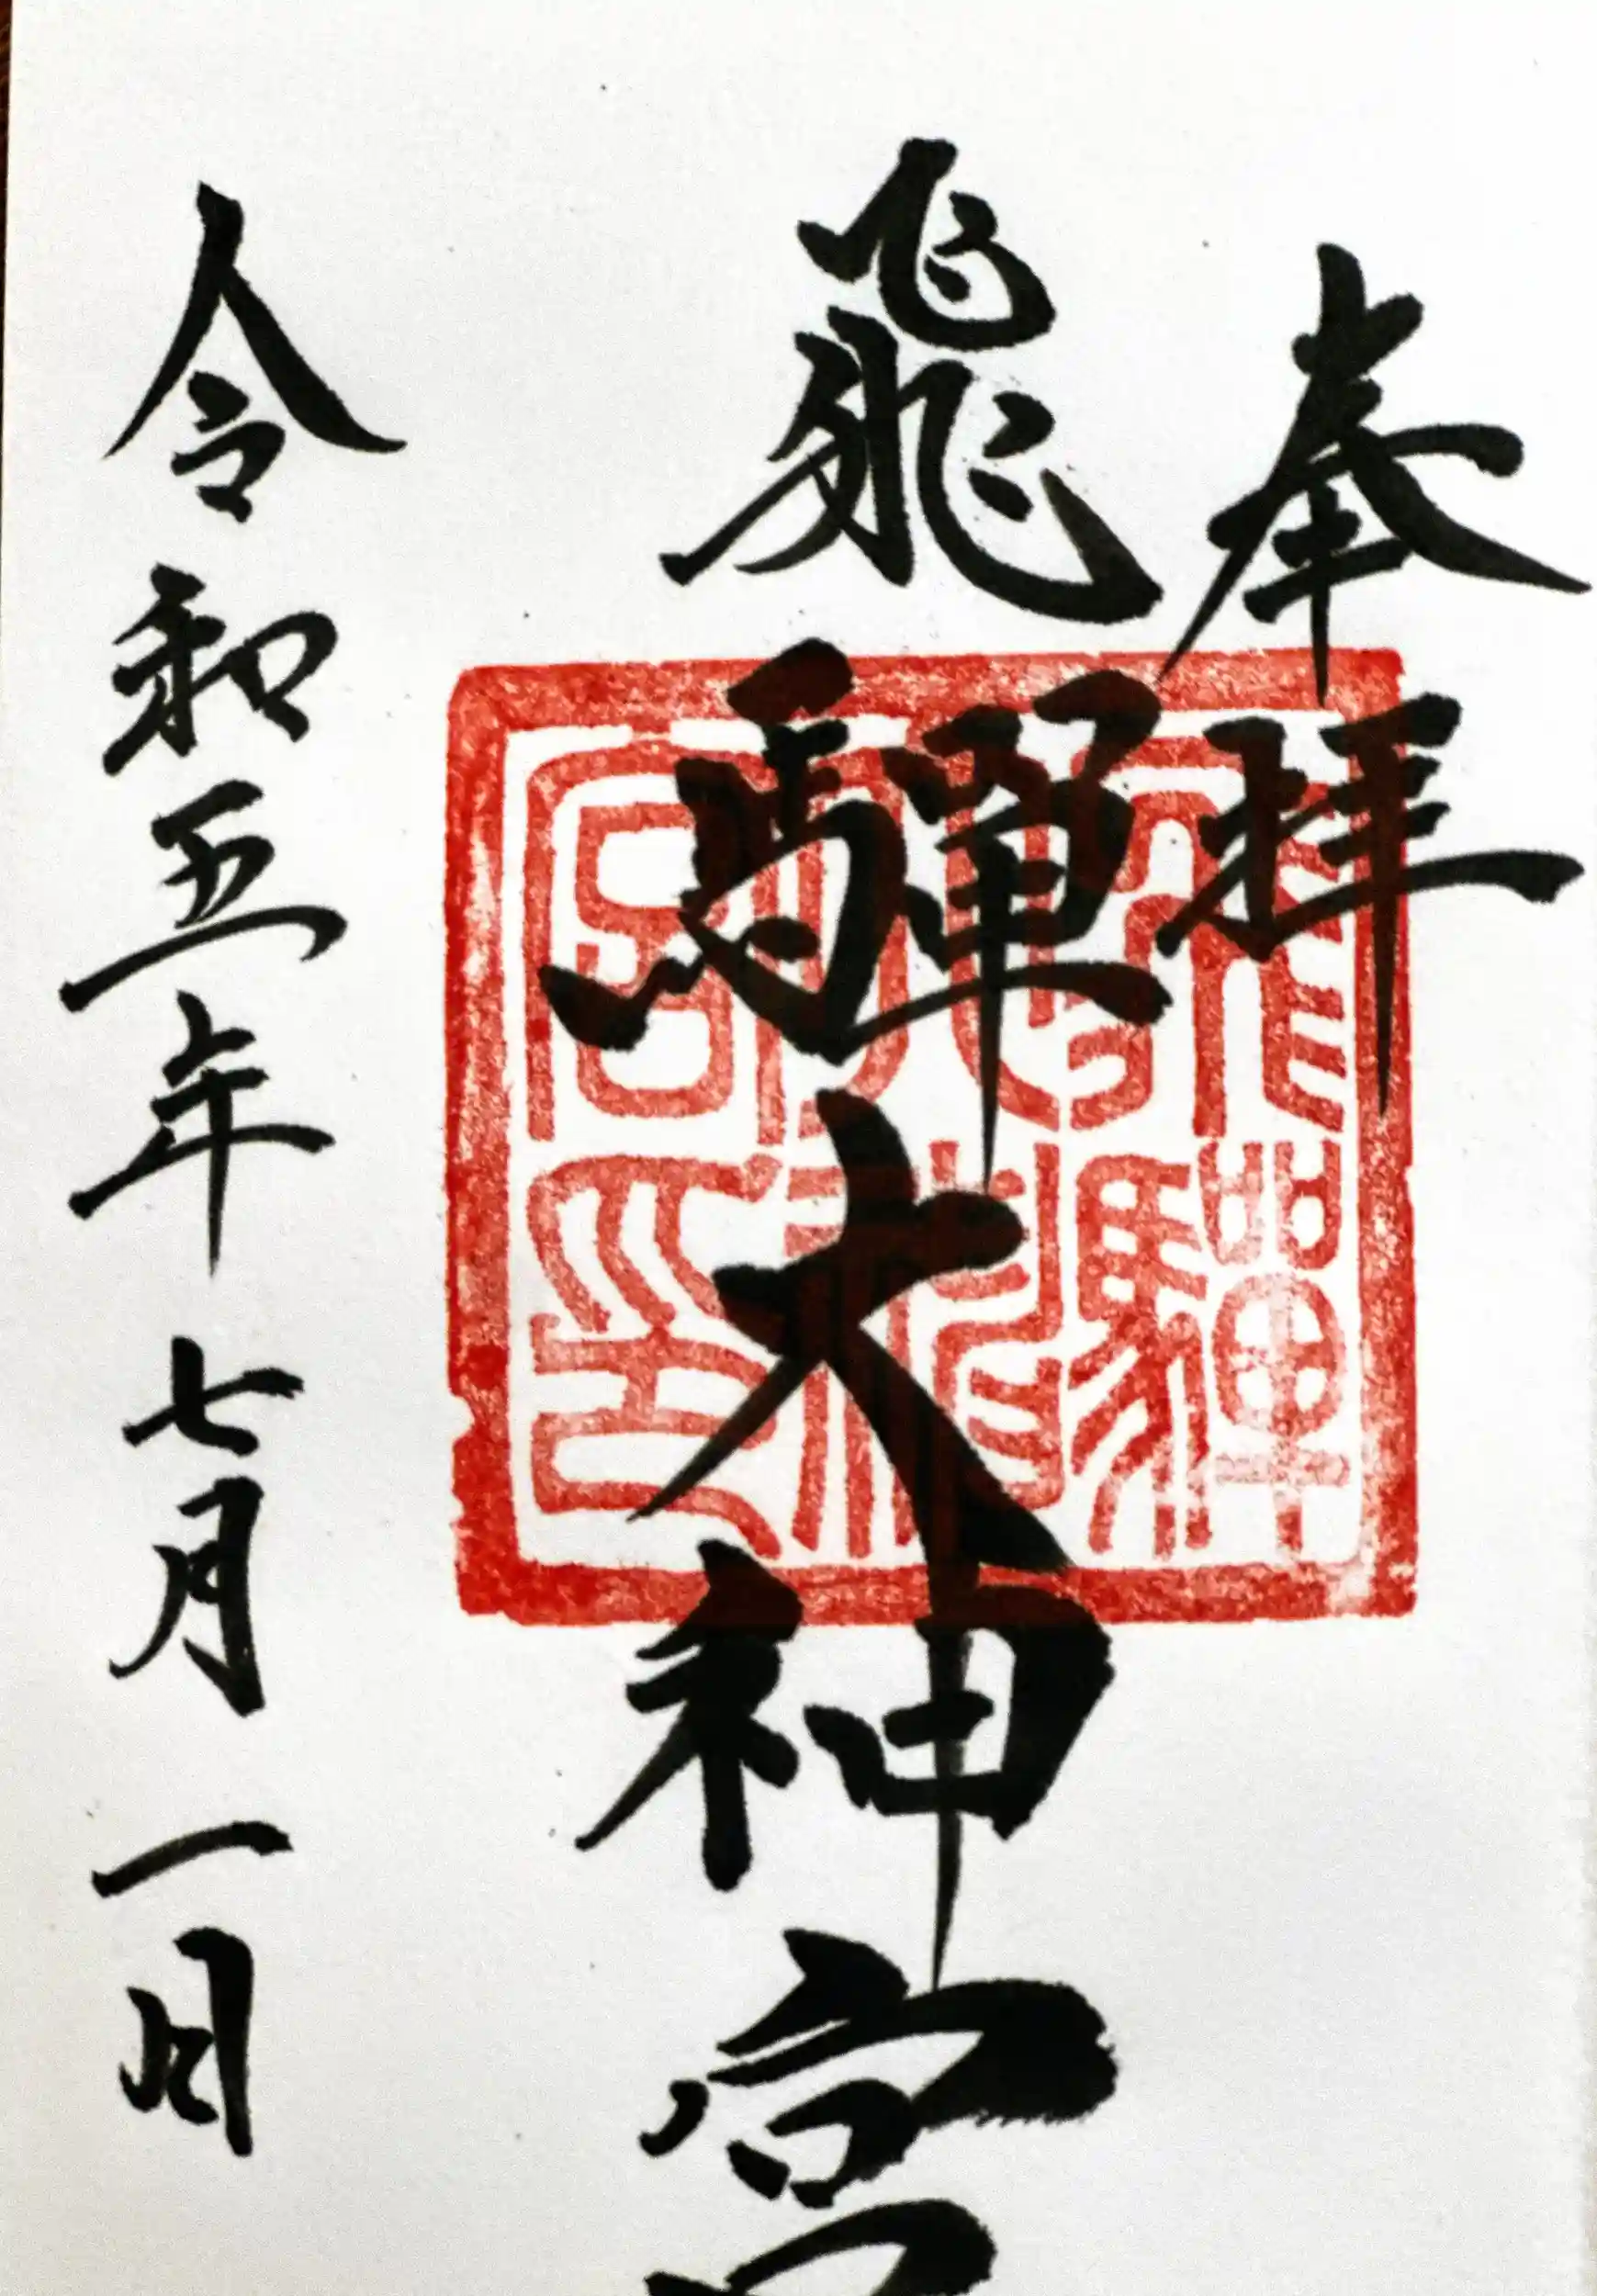 奉拝
飛騨大神宮
令和五年七月一日
飛騨
大神
宮印